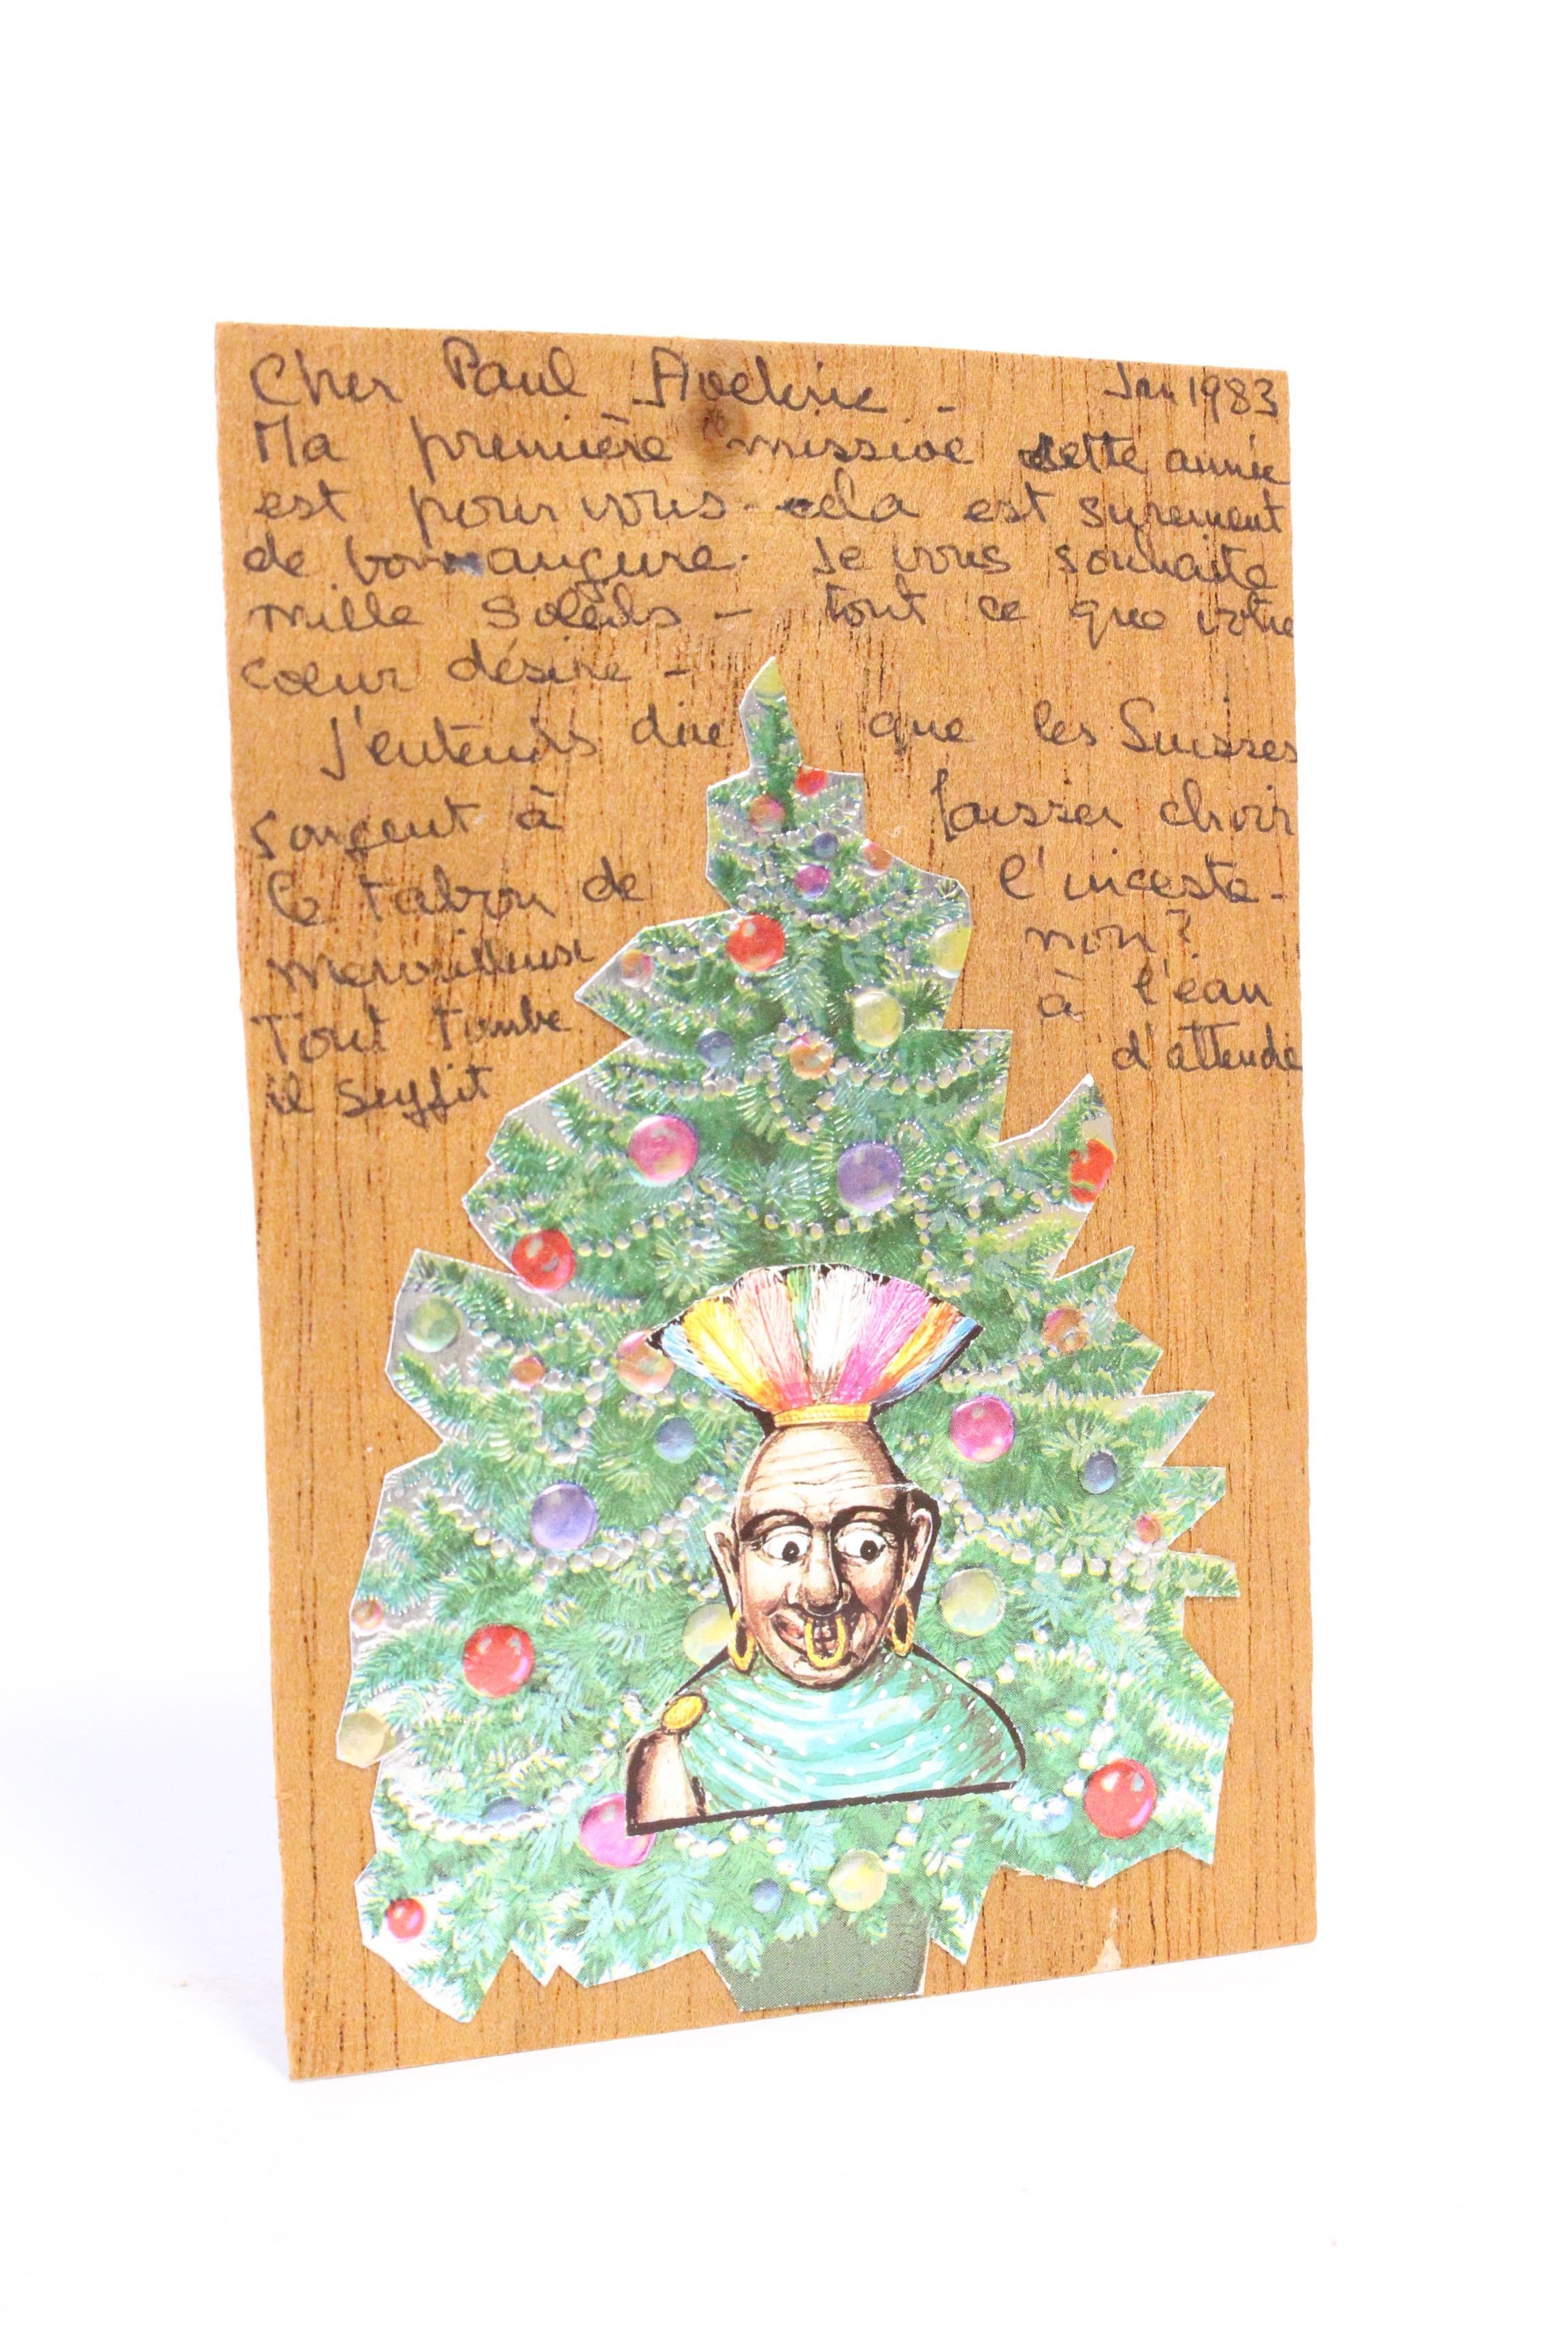 Cher Paul Aveline - Jan 1983
Ma première missive cette année
est pour vous - cela est surement
de bon augure. Je vous souhaite
mille soleils - tout ce que votre
coeur désire -
J'entends dire que les Suisses
songent à laisser choir
le tabou de l'inceste -
merveilleuse non ?
Tout tombe à l'eau
il suffit d'attendre